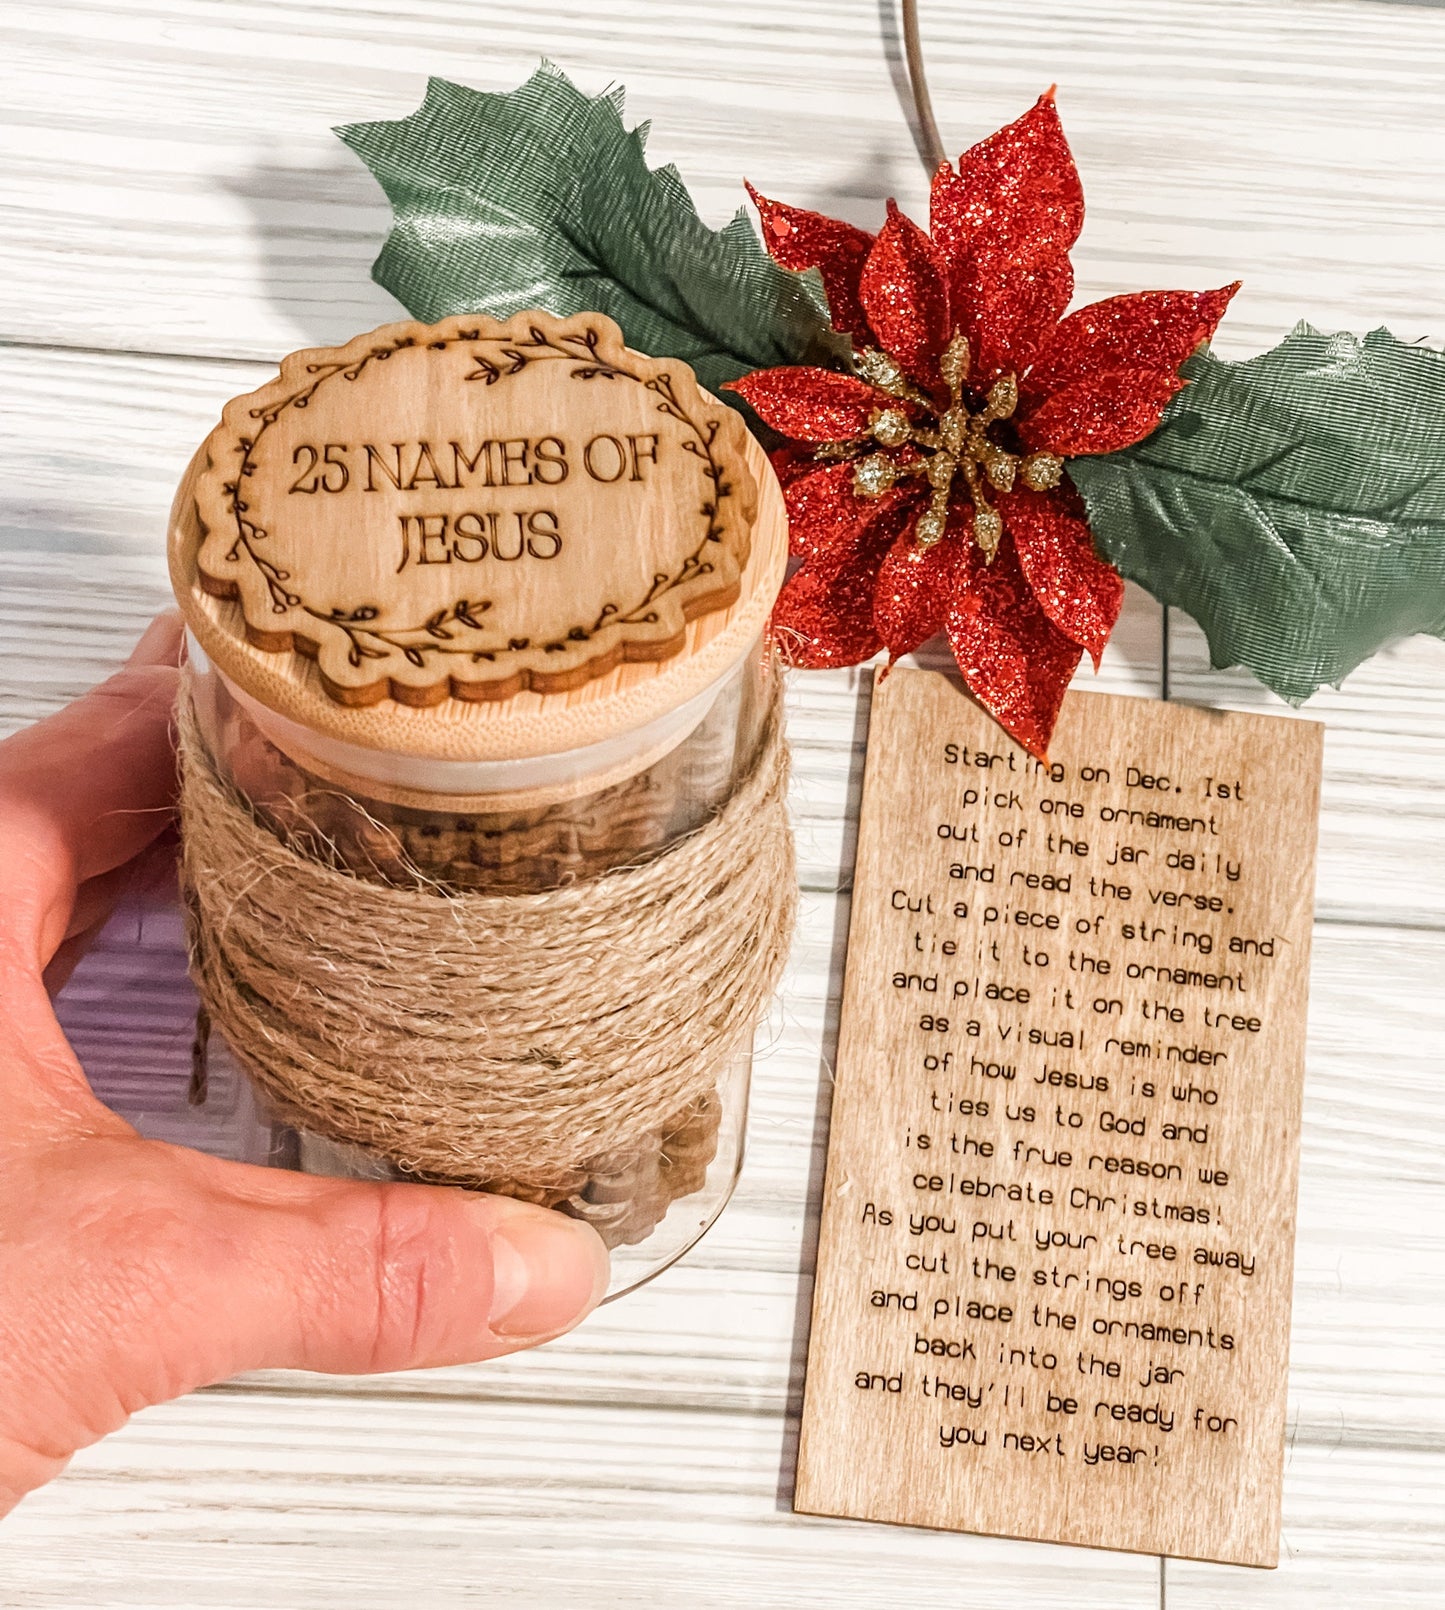 25 NAMES OF
JESUS
Starting on Dec. 1st
pick one ornament
out of the jar daily
and read the verse.
Cut a piece of string and
tie it to the ornament
and place it on the tree
as a visual reminder
of how Jesus is who
ties us to God and
is the frue reason we
celebrate Christmas!
As you put your tree away
cut the strings off
and place the ornaments
back into the jar
and they'll be ready for
you next year!